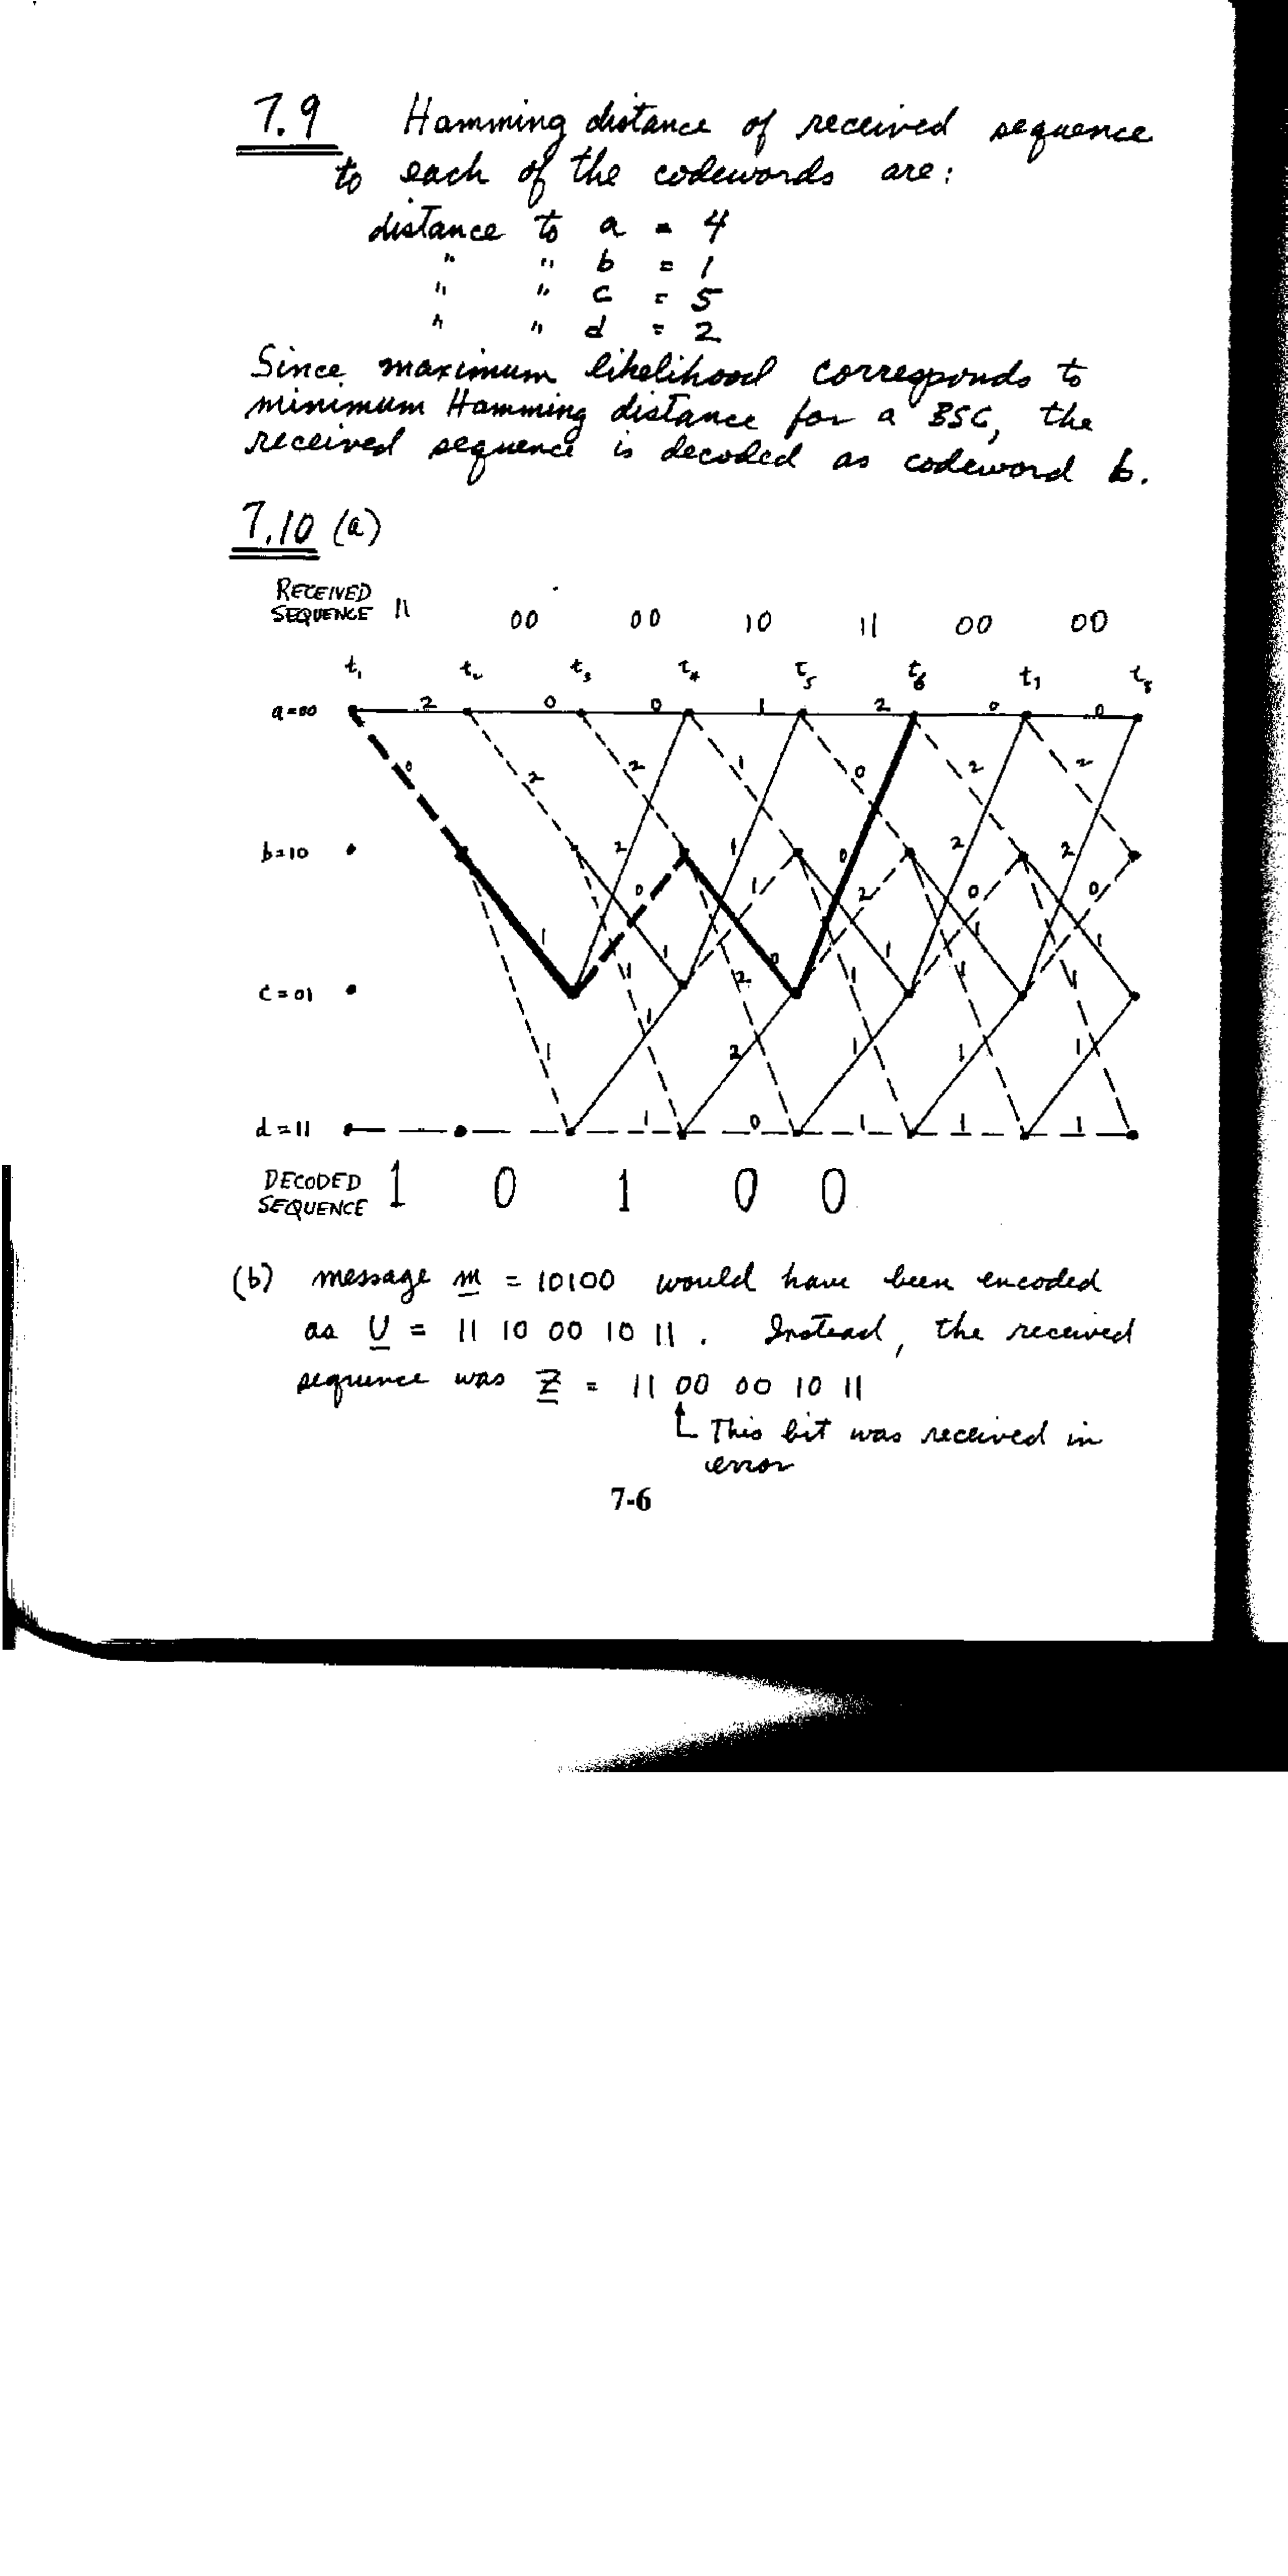 7.9 Hamming distance of received sequence
to each of the codewords are:
distance to a = 4
" " b = 1
" " c = 5
" " d = 2
Since maximum likelihood corresponds to
minimum Hamming distance for a BSC, the
received sequence is decoded as codeword b.
7.10 (a)
RECEIVED
SEQUENCE 11 00 00 10 11 00 00
t1 t2 t3 t4 t5 t6 t7 t8
a=00 2 0 0 1 2 0 0
0 2 2 1 0 2 2
b=10 2 1 0 2 2
0 1 2 0 0
1 1 0 1 1 1
c=01 1 2 1 1 1
1
1 2 1 1 1
d=11 1 0 1 1 1
DECODED
SEQUENCE 1 0 1 0 0
(b) message m = 10100 would have been encoded
as U = 11 10 00 10 11. Instead, the received
sequence was Z = 11 00 00 10 11
This bit was received in
error
7-6